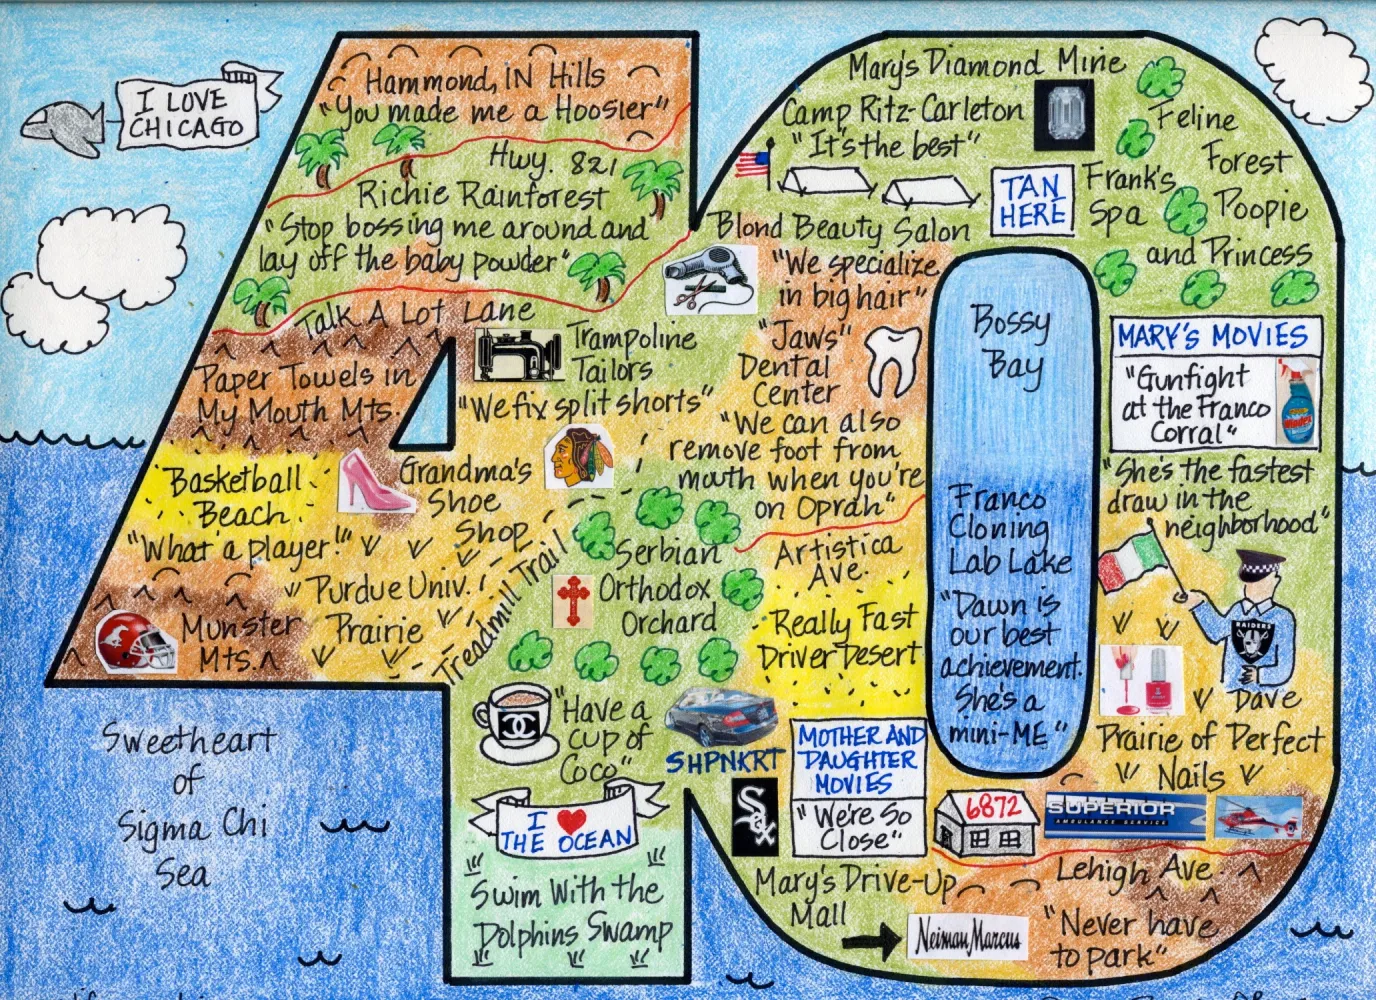 I LOVE
CHICAGO
Hammond, IN Hills
"You made me a Hoosier"
Hwy. 821
Richie Rainforest
"Stop bossing me around and
lay off the baby powder"
Talk A Lot Lane
Paper Towels in
My Mouth Mts.
Trampoline
Tailors
"We fix split shorts"
Basketball
Beach
"What a player!"
Grandma's
Shoe
Shop
Purdue Univ.
Prairie
Treadmill Trail
Munster
Mts.
Serbian
Orthodox
Orchard
"Have a
cup of
Coco"
I
THE OCEAN
Swim With the
Dolphins Swamp
Sweetheart
of
Sigma Chi
Sea
Mary's Diamond Mine
Camp Ritz-Carleton
"It's the best"
TAN
HERE
Frank's
Spa
Feline
Forest
Poopie
and Princess
Blond Beauty Salon
"We specialize
in big hair"
"Jaws"
Dental
Center
"We can also
remove foot from
mouth when you're
on Oprah"
Artistica
Ave.
Really Fast
Driver Desert
SHPNKRT
MOTHER AND
DAUGHTER
MOVIES
"We're So
Close"
Sox
Bossy
Bay
Franco
Cloning
Lab Lake
"Dawn is
our best
achievement.
She's a
mini-ME"
MARY'S MOVIES
"Gunfight
at the Franco
Corral"
"She's the fastest
draw in the
neighborhood"
RAIDERS
Dave
Prairie of Perfect
Nails
6872
SUPERIOR
AMBULANCE SERVICE
Lehigh Ave.
Mary's Drive-Up
Mall
Neiman Marcus
"Never have
to park"